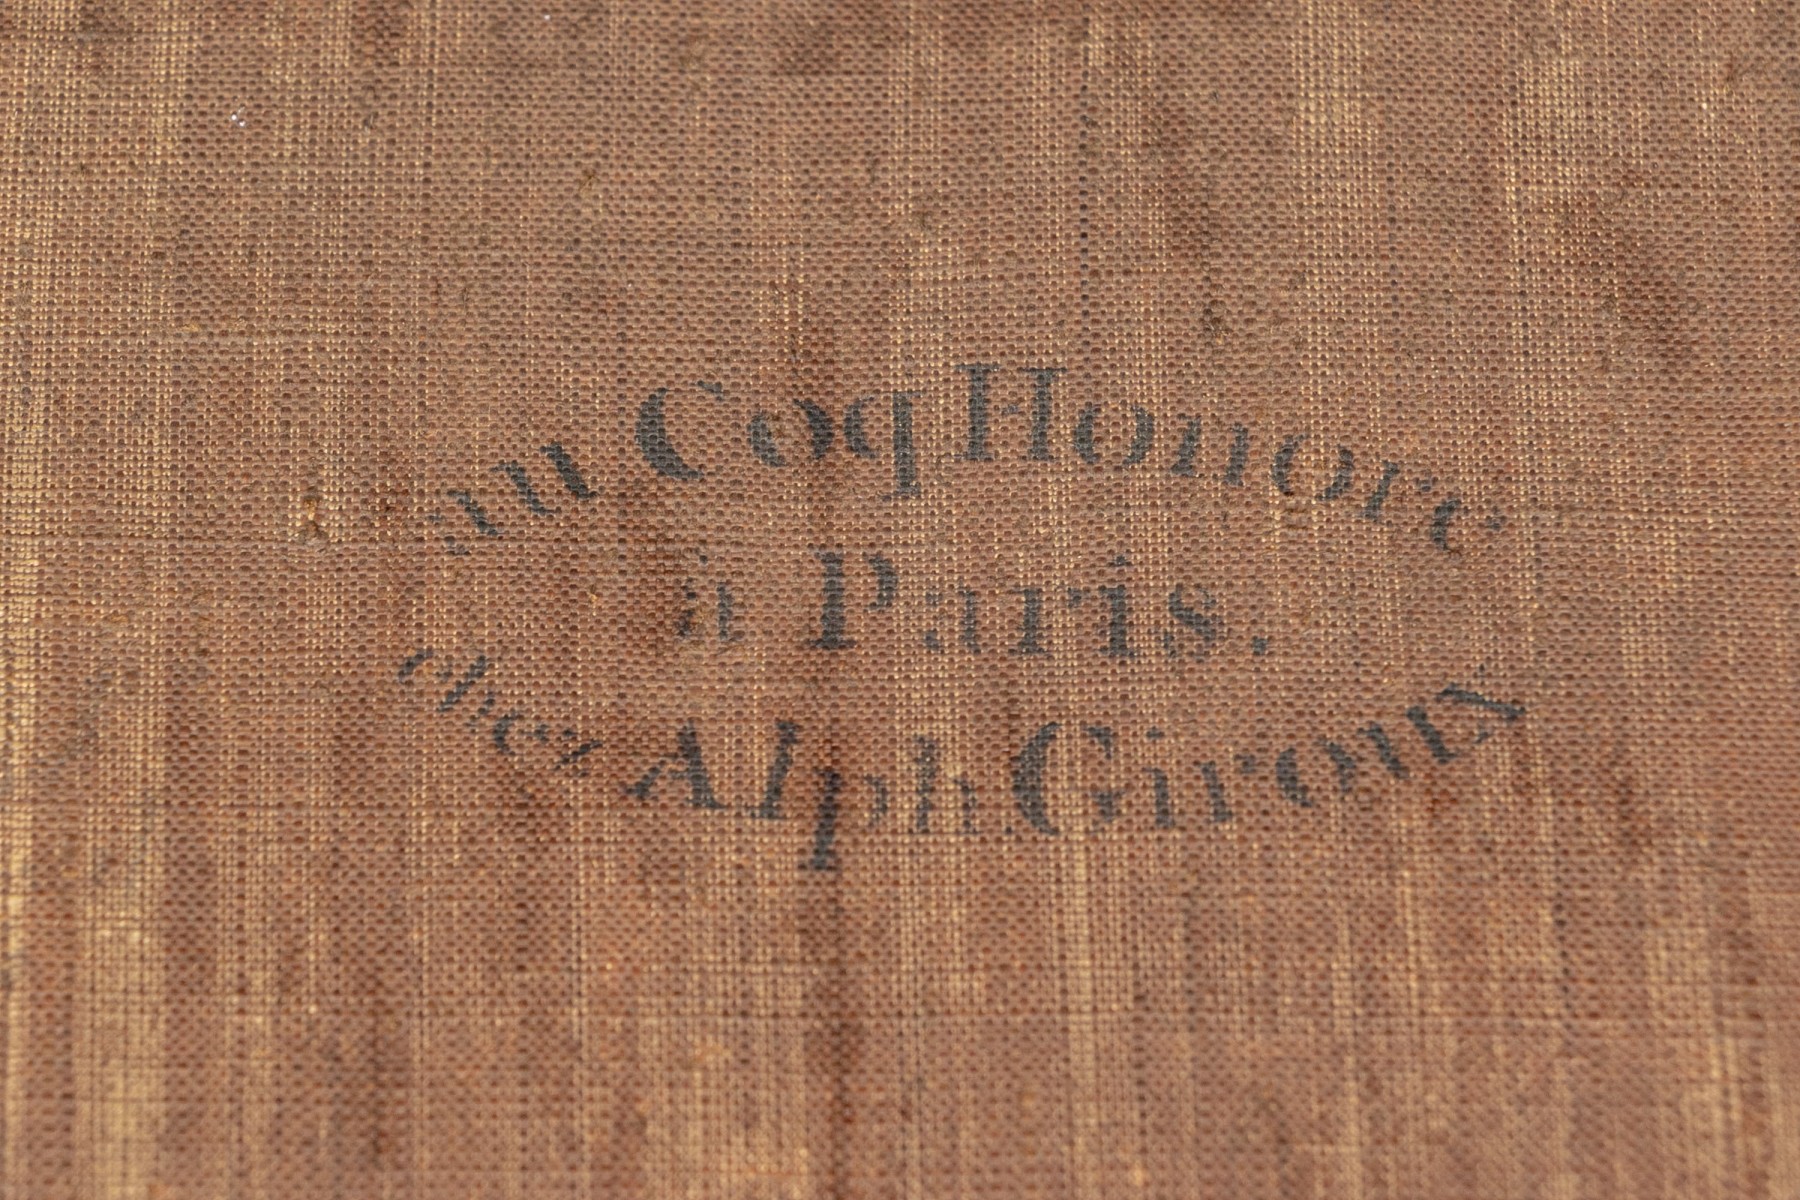 au Coq Honoré
à Paris.
chez Alph. Giroux